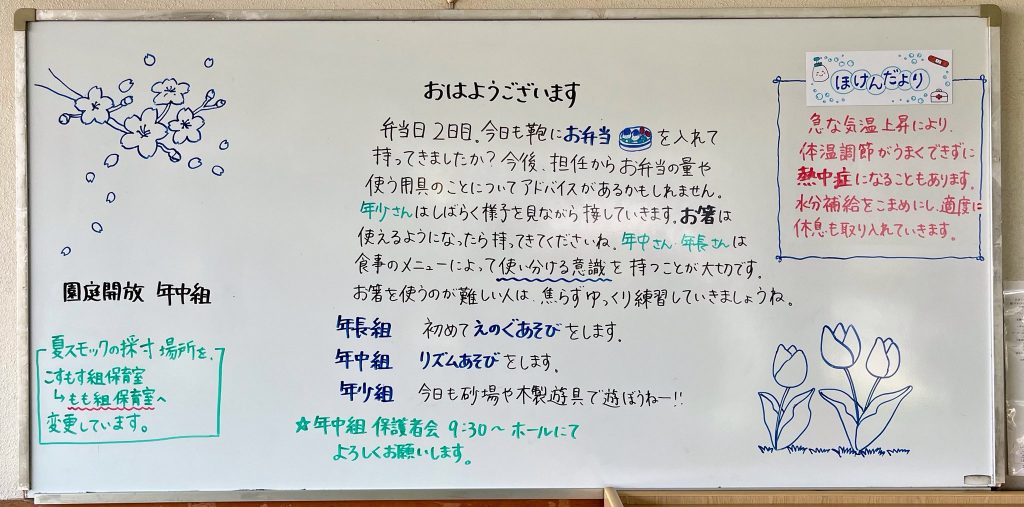 おはようございます
弁当日2日目。今日も鞄にお弁当を入れて
持ってきましたか?今後、担任からお弁当の量や
使う用具のことについてアドバイスがあるかもしれません。
年少さんはしばらく様子を見ながら接していきます。お箸は
使えるようになったら持ってきてくださいね。年中さん 年長さんは
食事のメニューによって使い分ける意識を持つことが大切です。
お箸を使うのが難しい人は、焦らずゆっくり練習していきましょうね。
年長組 初めてえのぐあそびをします。
年中組 リズムあそびをします。
年少組 今日も砂場や木製遊具で遊ぼうねー!!
☆年中組 保護者会 9:30~ホールにて
よろしくお願いします。
園庭開放 年中組
夏スモックの採寸場所を、
こすもす組保育室
↳もも組保育室へ
変更しています。
ほけんだより
急な気温上昇により、
体温調節がうまくできずに
熱中症になることもあります。
水分補給をこまめにし、適度に
休息も取り入れていきます。